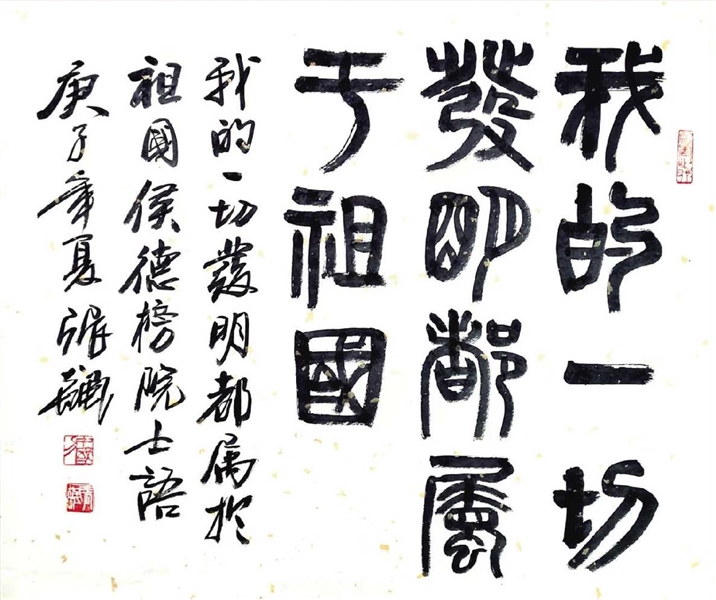 我的一切
發明都属
于祖國
我的一切發明都属於
祖國侯德榜院士語
庚子年夏張